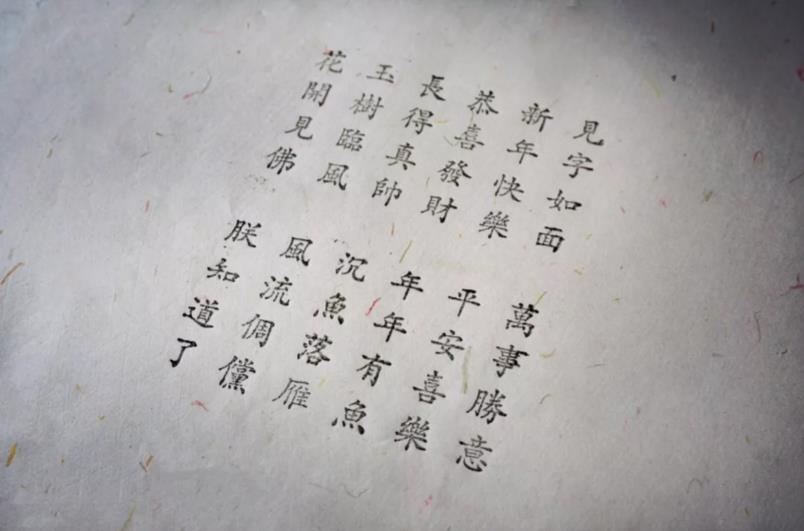 見字如面 萬事勝意
新年快樂 平安喜樂
恭喜發財 年年有魚
長得真帥 沉魚落雁
玉樹臨風 風流倜儻
花開見佛 朕知道了